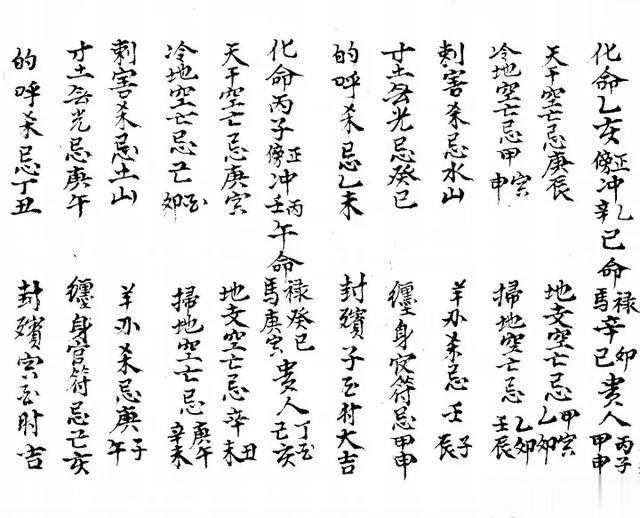 化命乙亥正傍冲乙辛巳命禄卯馬辛巳貴人丙子甲申
天干空亡忌庚辰 地支空亡忌甲寅乙卯
冷地空亡忌甲寅申 掃地空亡忌乙卯壬辰
刺害杀忌水山 羊刃杀忌壬子辰
寸土無光忌癸巳 纏身官符忌甲申
的呼杀忌乙未 封殯子至時大吉
化命丙子正傍冲丙壬午命禄癸巳馬庚寅貴人丁至己亥
天干空亡忌庚寅 地支空亡忌辛丑未
冷地空亡忌己至卯 掃地空亡忌庚午辛未
刺害杀忌土山 羊刃杀忌庚子午
寸土無光忌庚午 纏身官符忌己亥
的呼杀忌丁丑 封殯寅至時吉